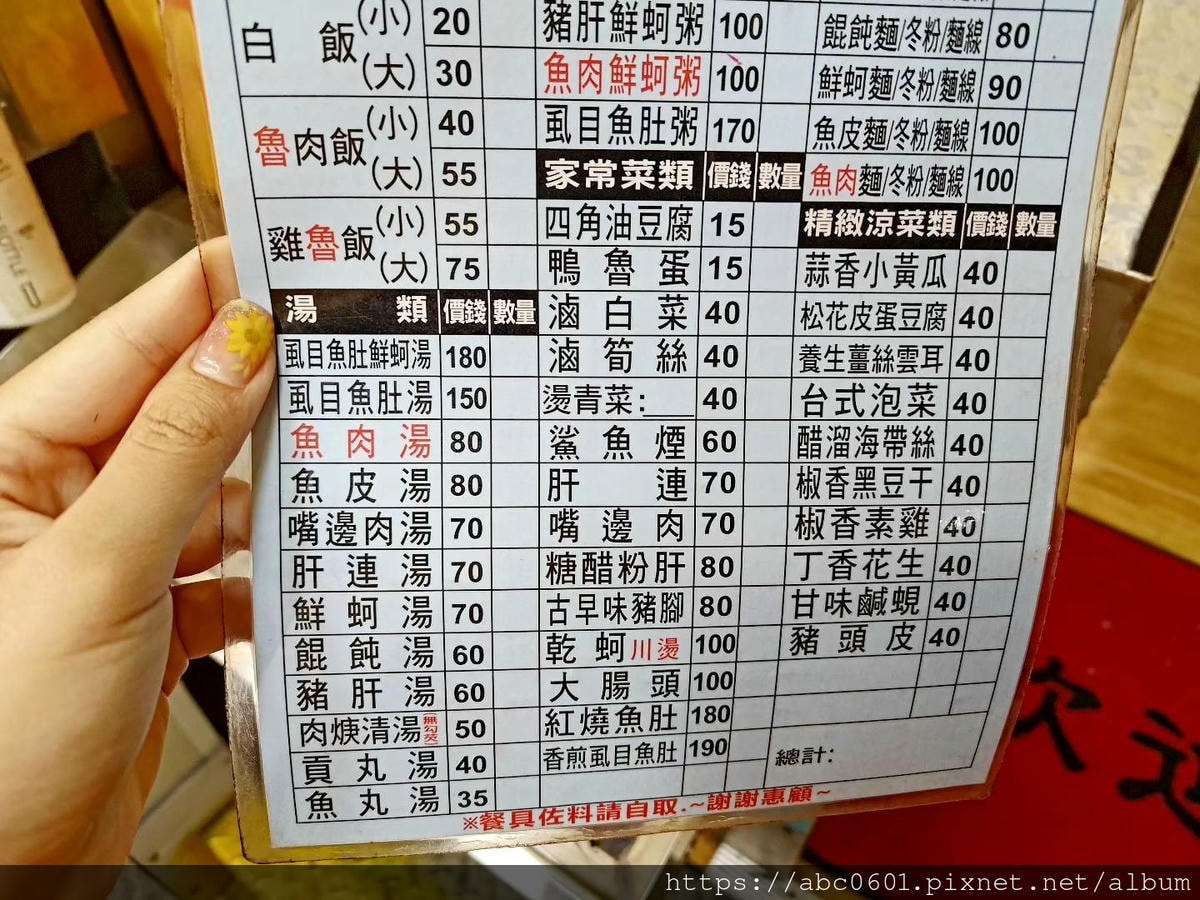 白飯(小) 20
(大) 30
魯肉飯(小) 40
(大) 55
雞魯飯(小) 55
(大) 75
湯類 價錢 數量
虱目魚肚鮮蚵湯 180
虱目魚肚湯 150
魚肉湯 80
魚皮湯 80
嘴邊肉湯 70
肝連湯 70
鮮蚵湯 70
餛飩湯 60
豬肝湯 60
肉焿清湯(無勾芡) 50
貢丸湯 40
魚丸湯 35
豬肝鮮蚵粥 100
魚肉鮮蚵粥 100
虱目魚肚粥 170
家常菜類 價錢 數量
四角油豆腐 15
鴨魯蛋 15
滷白菜 40
滷筍絲 40
燙青菜:___ 40
鯊魚煙 60
肝連 70
嘴邊肉 70
糖醋粉肝 80
古早味豬腳 80
乾蚵川燙 100
大腸頭 100
紅燒魚肚 180
香煎虱目魚肚 190
餛飩麵/冬粉/麵線 80
鮮蚵麵/冬粉/麵線 90
魚皮麵/冬粉/麵線 100
魚肉麵/冬粉/麵線 100
精緻涼菜類 價錢 數量
蒜香小黃瓜 40
松花皮蛋豆腐 40
養生薑絲雲耳 40
台式泡菜 40
醋溜海帶絲 40
椒香黑豆干 40
椒香素雞 40
丁香花生 40
甘味鹹蜆 40
豬頭皮 40
總計:
※餐具佐料請自取.~謝謝惠顧~
BOTTLE
https://abc0601.pixnet.net/album